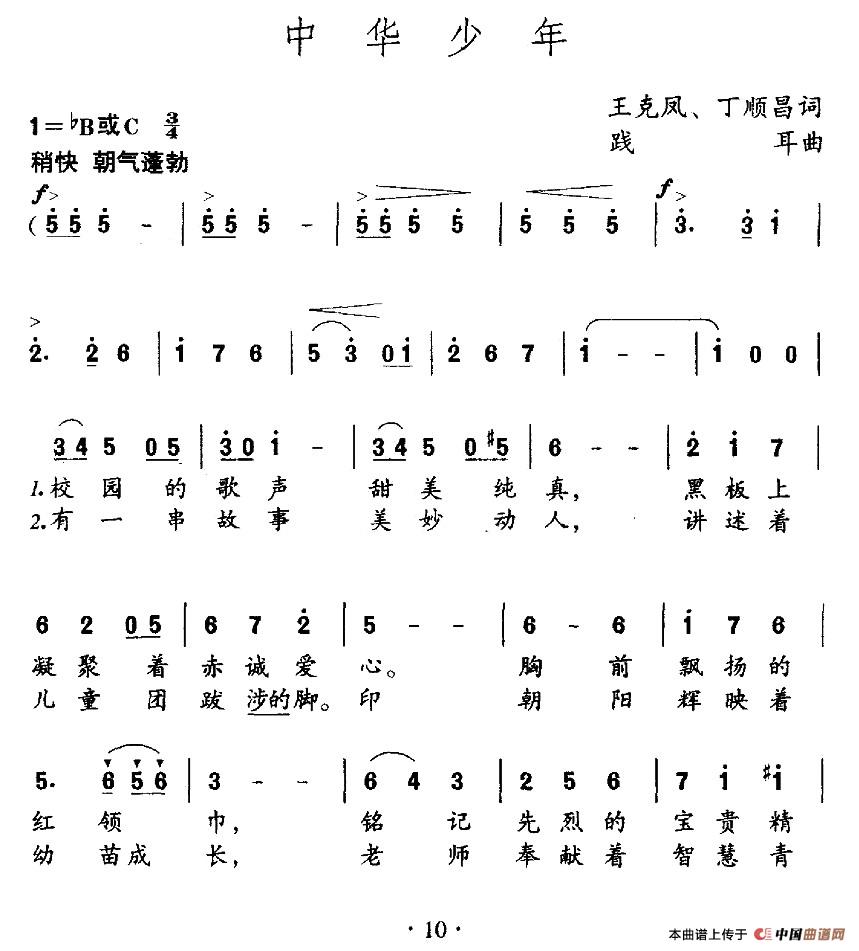 中华少年
王克凤、丁顺昌词
1=♭B或C 3/4
践 耳曲
稍快 朝气蓬勃
f f
(5̇ 5̇ 5̇ - | 5̇ 5̇ 5̇ - | 5̇ 5̇ 5̇ 5̇ | 5̇ 5̇ 5̇ | 3̇. 3̇ 1̇ |
2̇. 2̇ 6 | 1̇ 7 6 | 5 3̇ 0 1̇ | 2̇ 6 7 | 1̇ - - | 1̇ 0 0 |
3 4 5 0 5 | 3̇ 0 1̇ - | 3 4 5 0 #5 | 6 - - | 2̇ 1̇ 7 |
1.校园的歌声 甜美纯真, 黑板上
2.有一串故事 美妙动人, 讲述着
6 2 0 5 | 6 7 2̇ | 5 - - | 6 - 6 | 1̇ 7 6 |
凝聚着赤诚爱心。 胸前飘扬的
儿童团跋涉的脚。印 朝阳辉映着
5. 6 5 6 | 3 - - | 6 4 3 | 2 5 6 | 7 1̇ #1̇ |
红领巾, 铭记先烈的宝贵精
幼苗成长, 老师奉献着智慧青
· 10 ·
本曲谱上传于 中国曲谱网